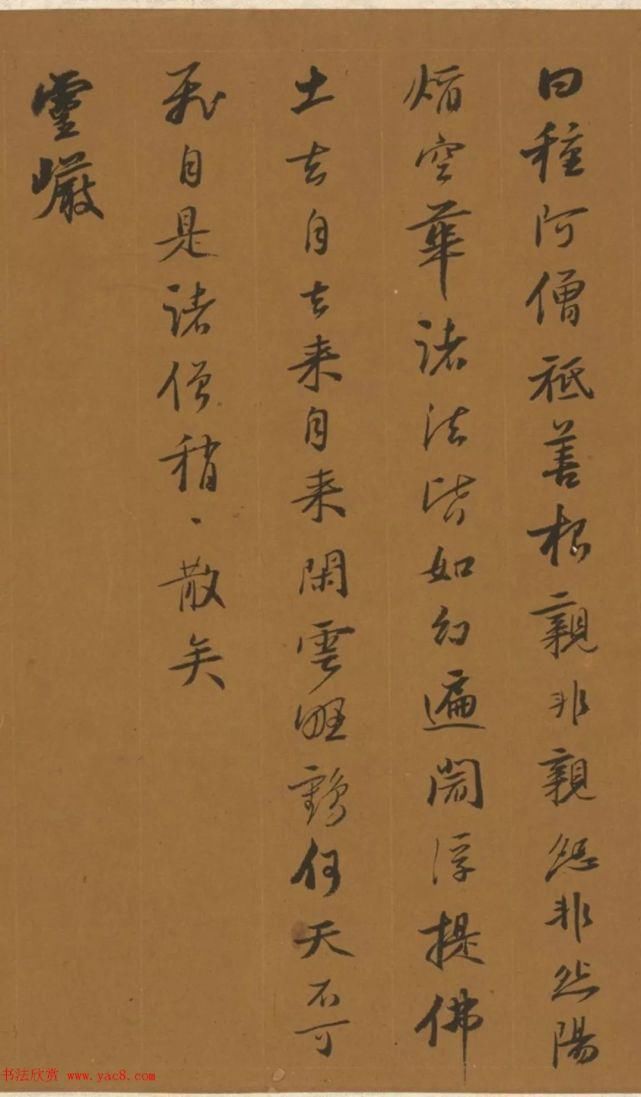 日種阿僧祇善根親非親怨非怨陽
焰空華諸法皆如幻遍閻浮提佛
土去自去來自來閑雲野鶴何天不可
飛自是諸僧稍〻散矣
靈巖
书法欣赏 www.yac8.com